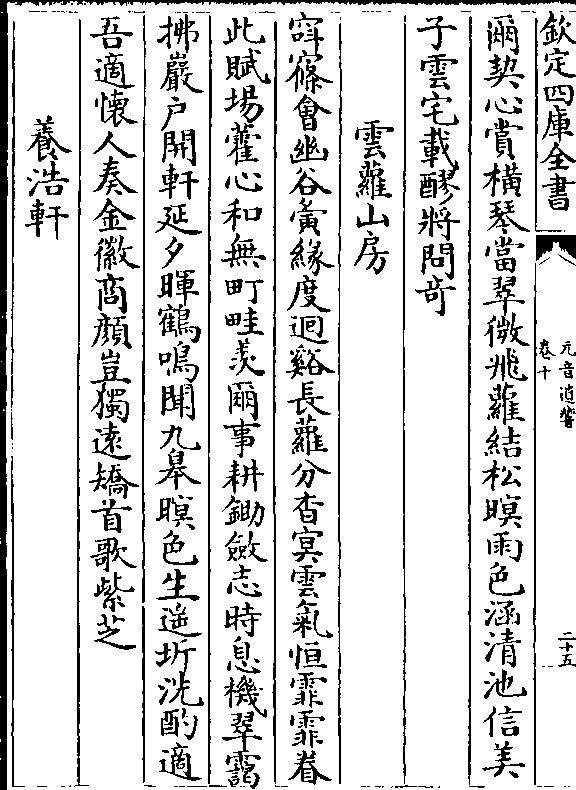 欽定四庫全書
元音遺響
卷十
二十五
爾契心賞橫琴當翠微飛蘿結松暝雨色涵清池信美
子雲宅載醪將問奇
雲蘿山房
窅窱會幽谷夤緣度迴谿長蘿分杳冥雲氣恒霏霏眷
此賦場藿心和無町畦羡爾事耕鋤斂志時息機翠靄
拂巖户開軒延夕暉鶴鳴聞九皋暝色生遥圻洗酌適
吾適懷人奏金徽商顔豈獨遠矯首歌紫芝
養浩軒